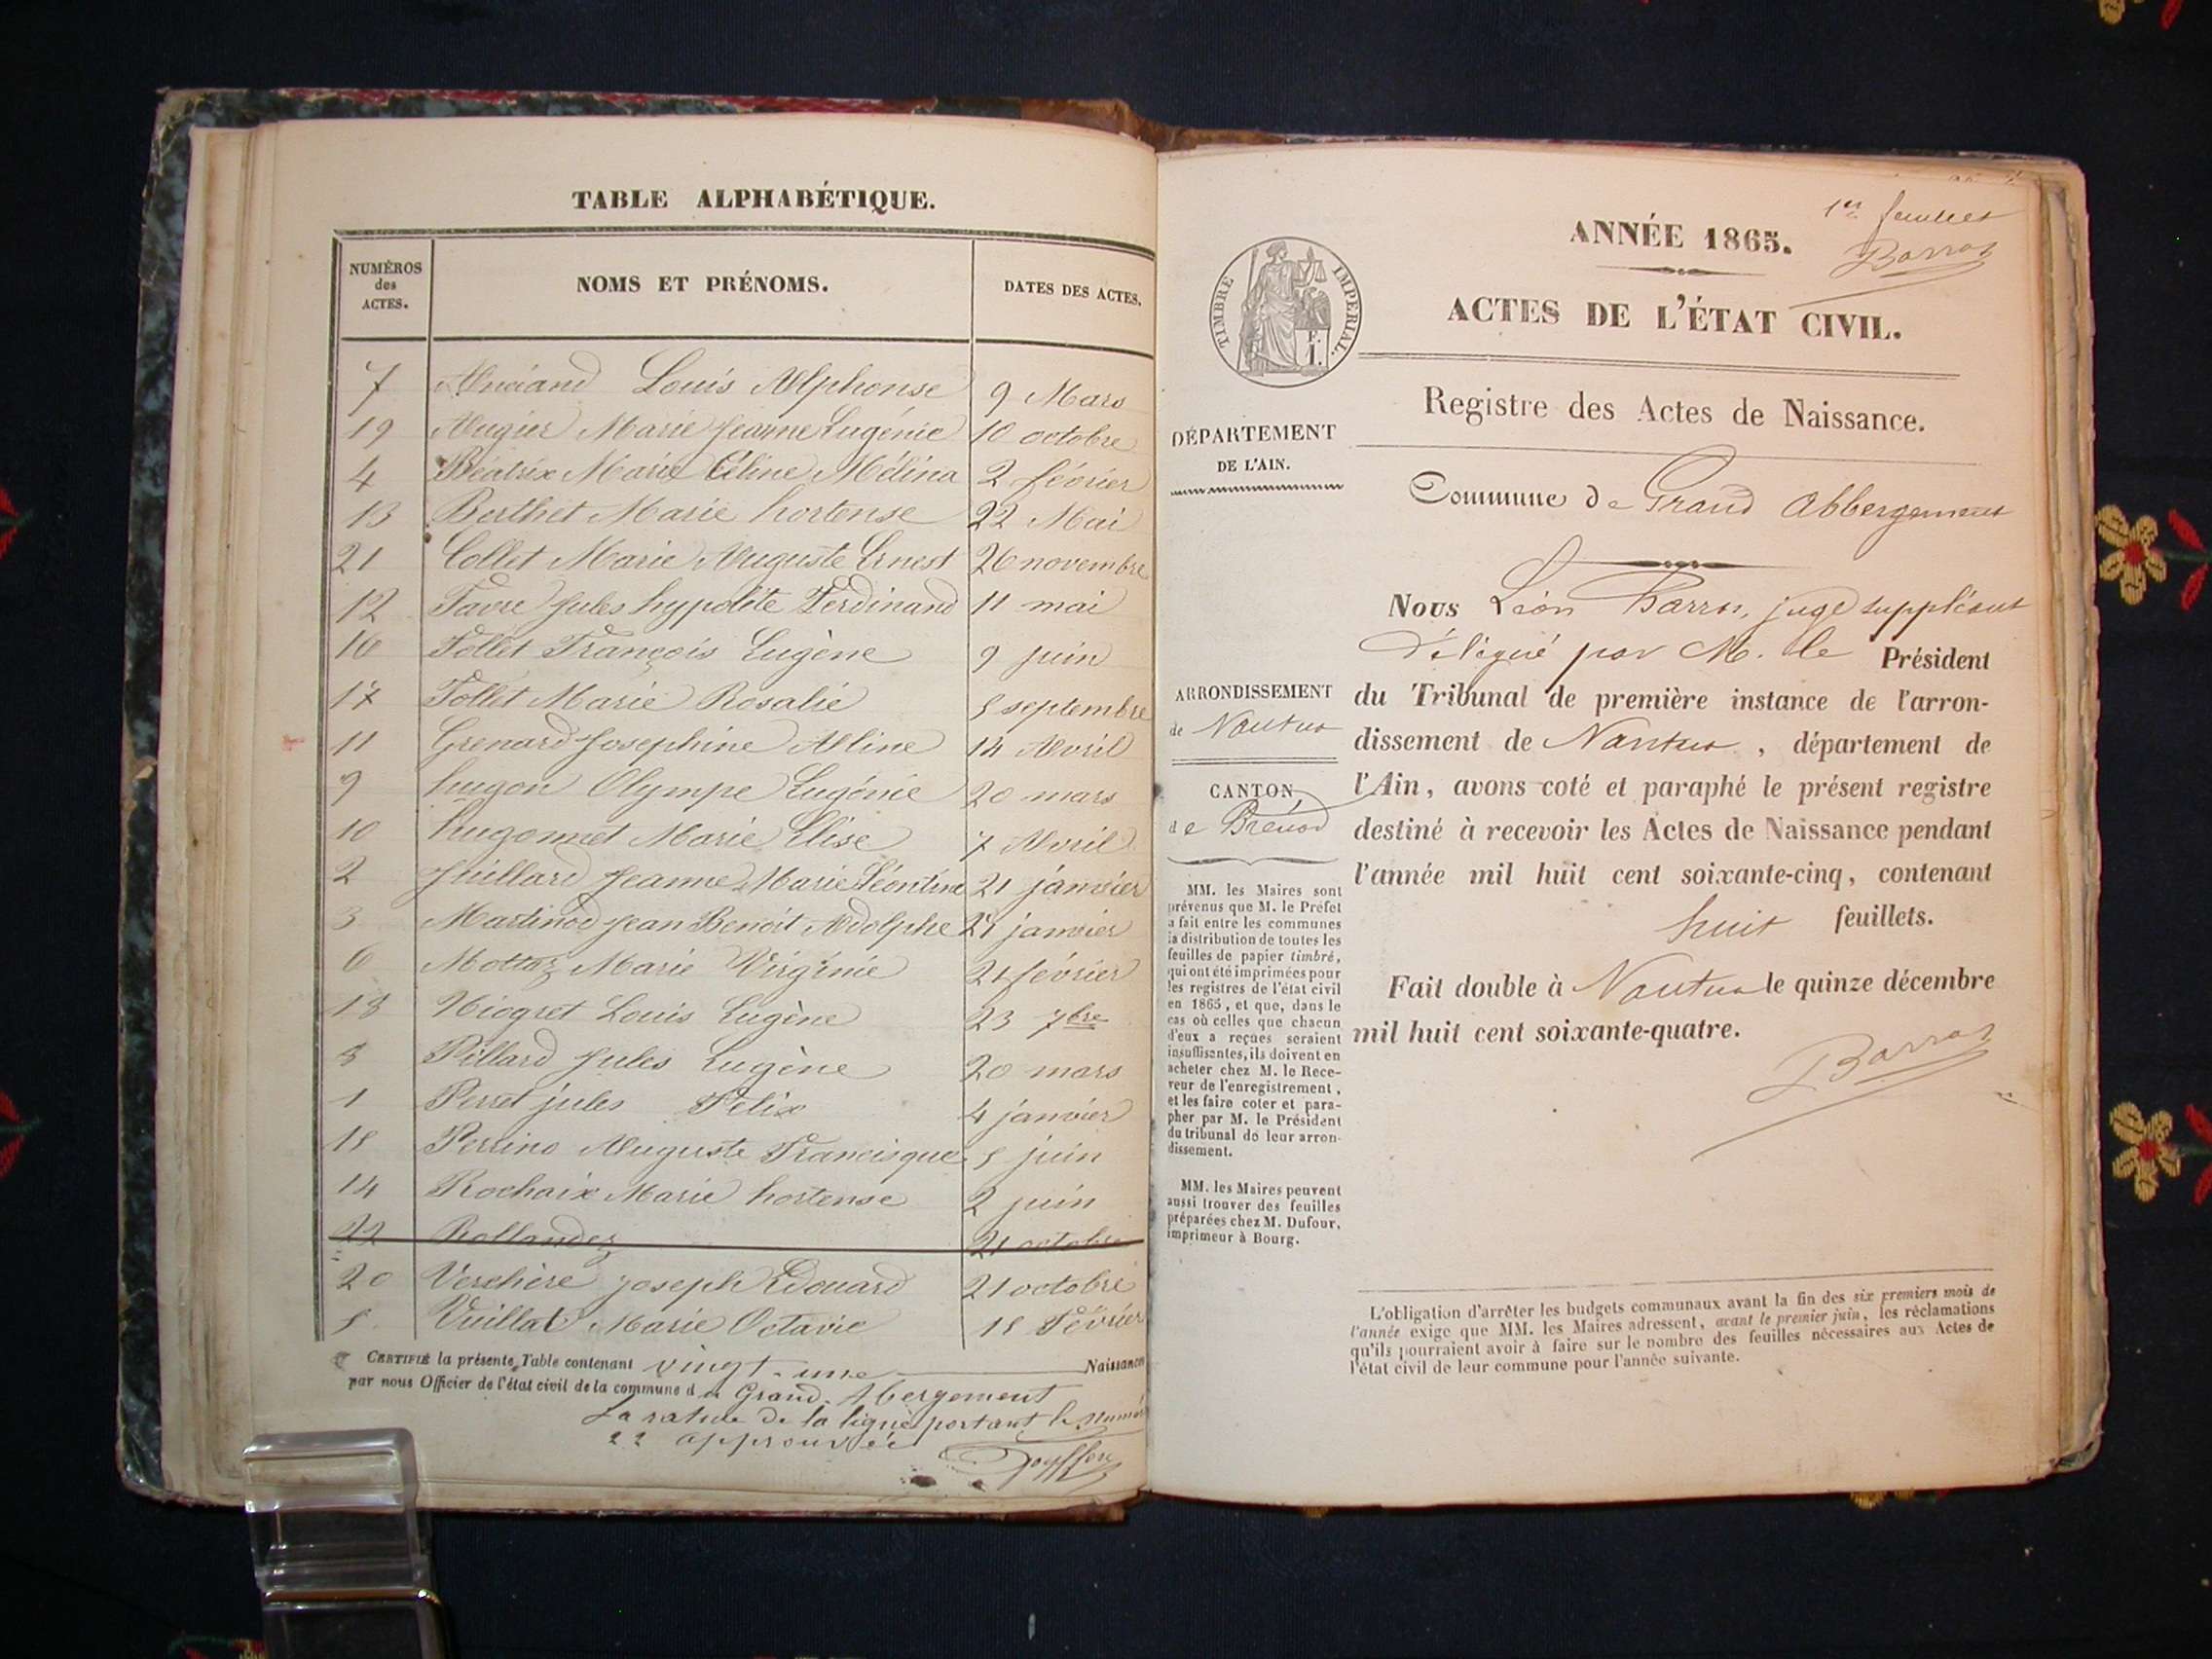 TABLE ALPHABÉTIQUE.
NUMÉROS des ACTES. NOMS ET PRÉNOMS. DATES DES ACTES.
7 Louis Alphonse 9 Mars
19 Augier Marie Jeanne Eugénie 10 octobre
4 Béatrix Marie Céline Mélina 2 février
13 Berthet Marie hortense 22 Mai
21 Collet Marie Auguste Ernest 26 novembre
12 Favre Jules hypolite Ferdinand 11 mai
16 Follet François Eugène 9 juin
17 Follet Marie Rosalie 5 septembre
11 Grenard Josephine Aline 14 Avril
9 hugon Olympe Eugénie 20 mars
10 hugonnet Marie Elise 7 Avril
2 Juillard Jeanne Marie Léontine 21 janvier
3 Martinod Jean Benoit Adolphe 27 janvier
6 Mottoz Marie Virginie 21 février
18 Niogret Louis Eugène 23 7bre
8 Pillard Jules Eugène 20 mars
1 Perret jules Felix 4 janvier
15 Perrino Auguste Francisque 5 juin
14 Rochaix Marie hortense 2 juin
22 Rollandez 21 octobre
20 Verchère joseph Edouard 21 octobre
5 Vuillat Marie Octavie 15 Février
CERTIFIÉ la présente Table contenant vingt-une Naissances
par nous Officier de l'état civil de la commune de Grand-Abergement
La rature de la ligne portant le numéro
22 approuvée
1er feuillet
Barroz
ANNÉE 1865.
ACTES DE L'ÉTAT CIVIL.
TIMBRE IMPÉRIAL.
Registre des Actes de Naissance.
DÉPARTEMENT
DE L'AIN.
Commune de Grand Abbergement
Nous Léon Barroz, juge suppléant
délégué par M. le Président
ARRONDISSEMENT
de Nantua
du Tribunal de première instance de l'arron-
dissement de Nantua, département de
CANTON
de Brénod
l'Ain, avons coté et paraphé le présent registre
destiné à recevoir les Actes de Naissance pendant
l'année mil huit cent soixante-cinq, contenant
huit feuillets.
Fait double à Nantua le quinze décembre
mil huit cent soixante-quatre.
Barroz
MM. les Maires sont
prévenus que M. le Préfet
a fait entre les communes
la distribution de toutes les
feuilles de papier timbré,
qui ont été imprimées pour
les registres de l'état civil
en 1865, et que, dans le
cas où celles que chacun
d'eux a reçues seraient
insuffisantes, ils doivent en
acheter chez M. le Rece-
veur de l'enregistrement,
et les faire coter et para-
pher par M. le Président
du tribunal de leur arron-
dissement.
MM. les Maires peuvent
aussi trouver des feuilles
préparées chez M. Dufour,
imprimeur à Bourg.
L'obligation d'arrêter les budgets communaux avant la fin des six premiers mois de
l'année exige que MM. les Maires adressent, avant le premier juin, les réclamations
qu'ils pourraient avoir à faire sur le nombre des feuilles nécessaires aux Actes de
l'état civil de leur commune pour l'année suivante.